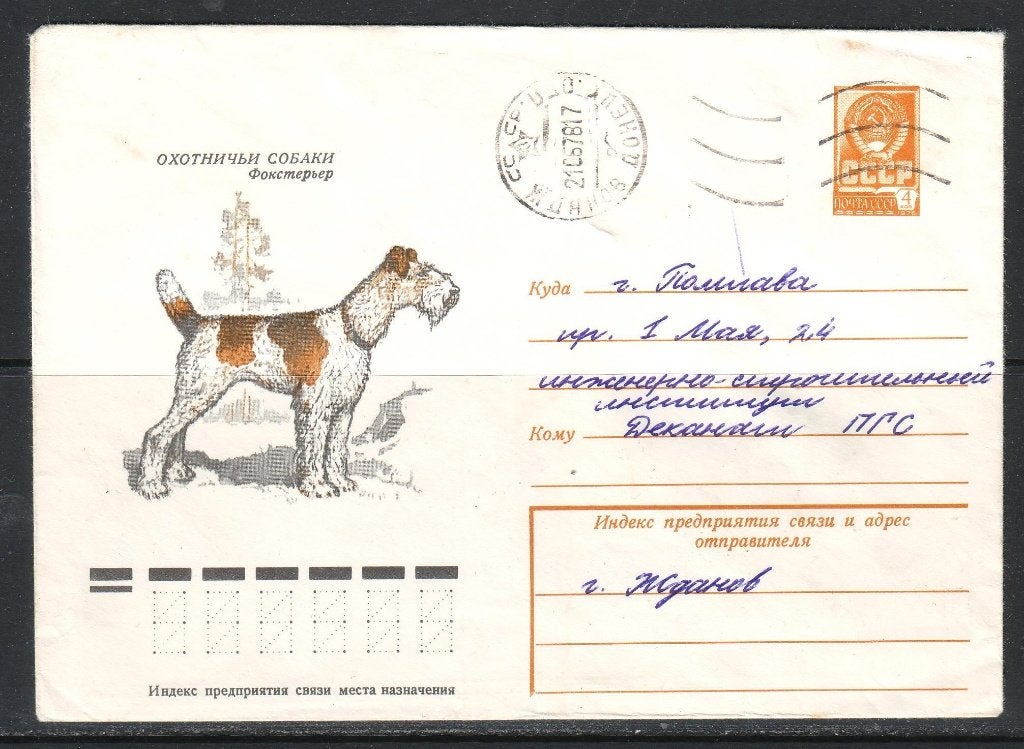 ОХОТНИЧЬИ СОБАКИ
Фокстерьер
СССР
ПОЧТА СССР
4
коп
Куда г. Полтава
пр. 1 Мая, 24
инженерно-строительный
институт
Кому Деканат ПГС
Индекс предприятия связи и адрес
отправителя
г. Жданов
Индекс предприятия связи места назначения